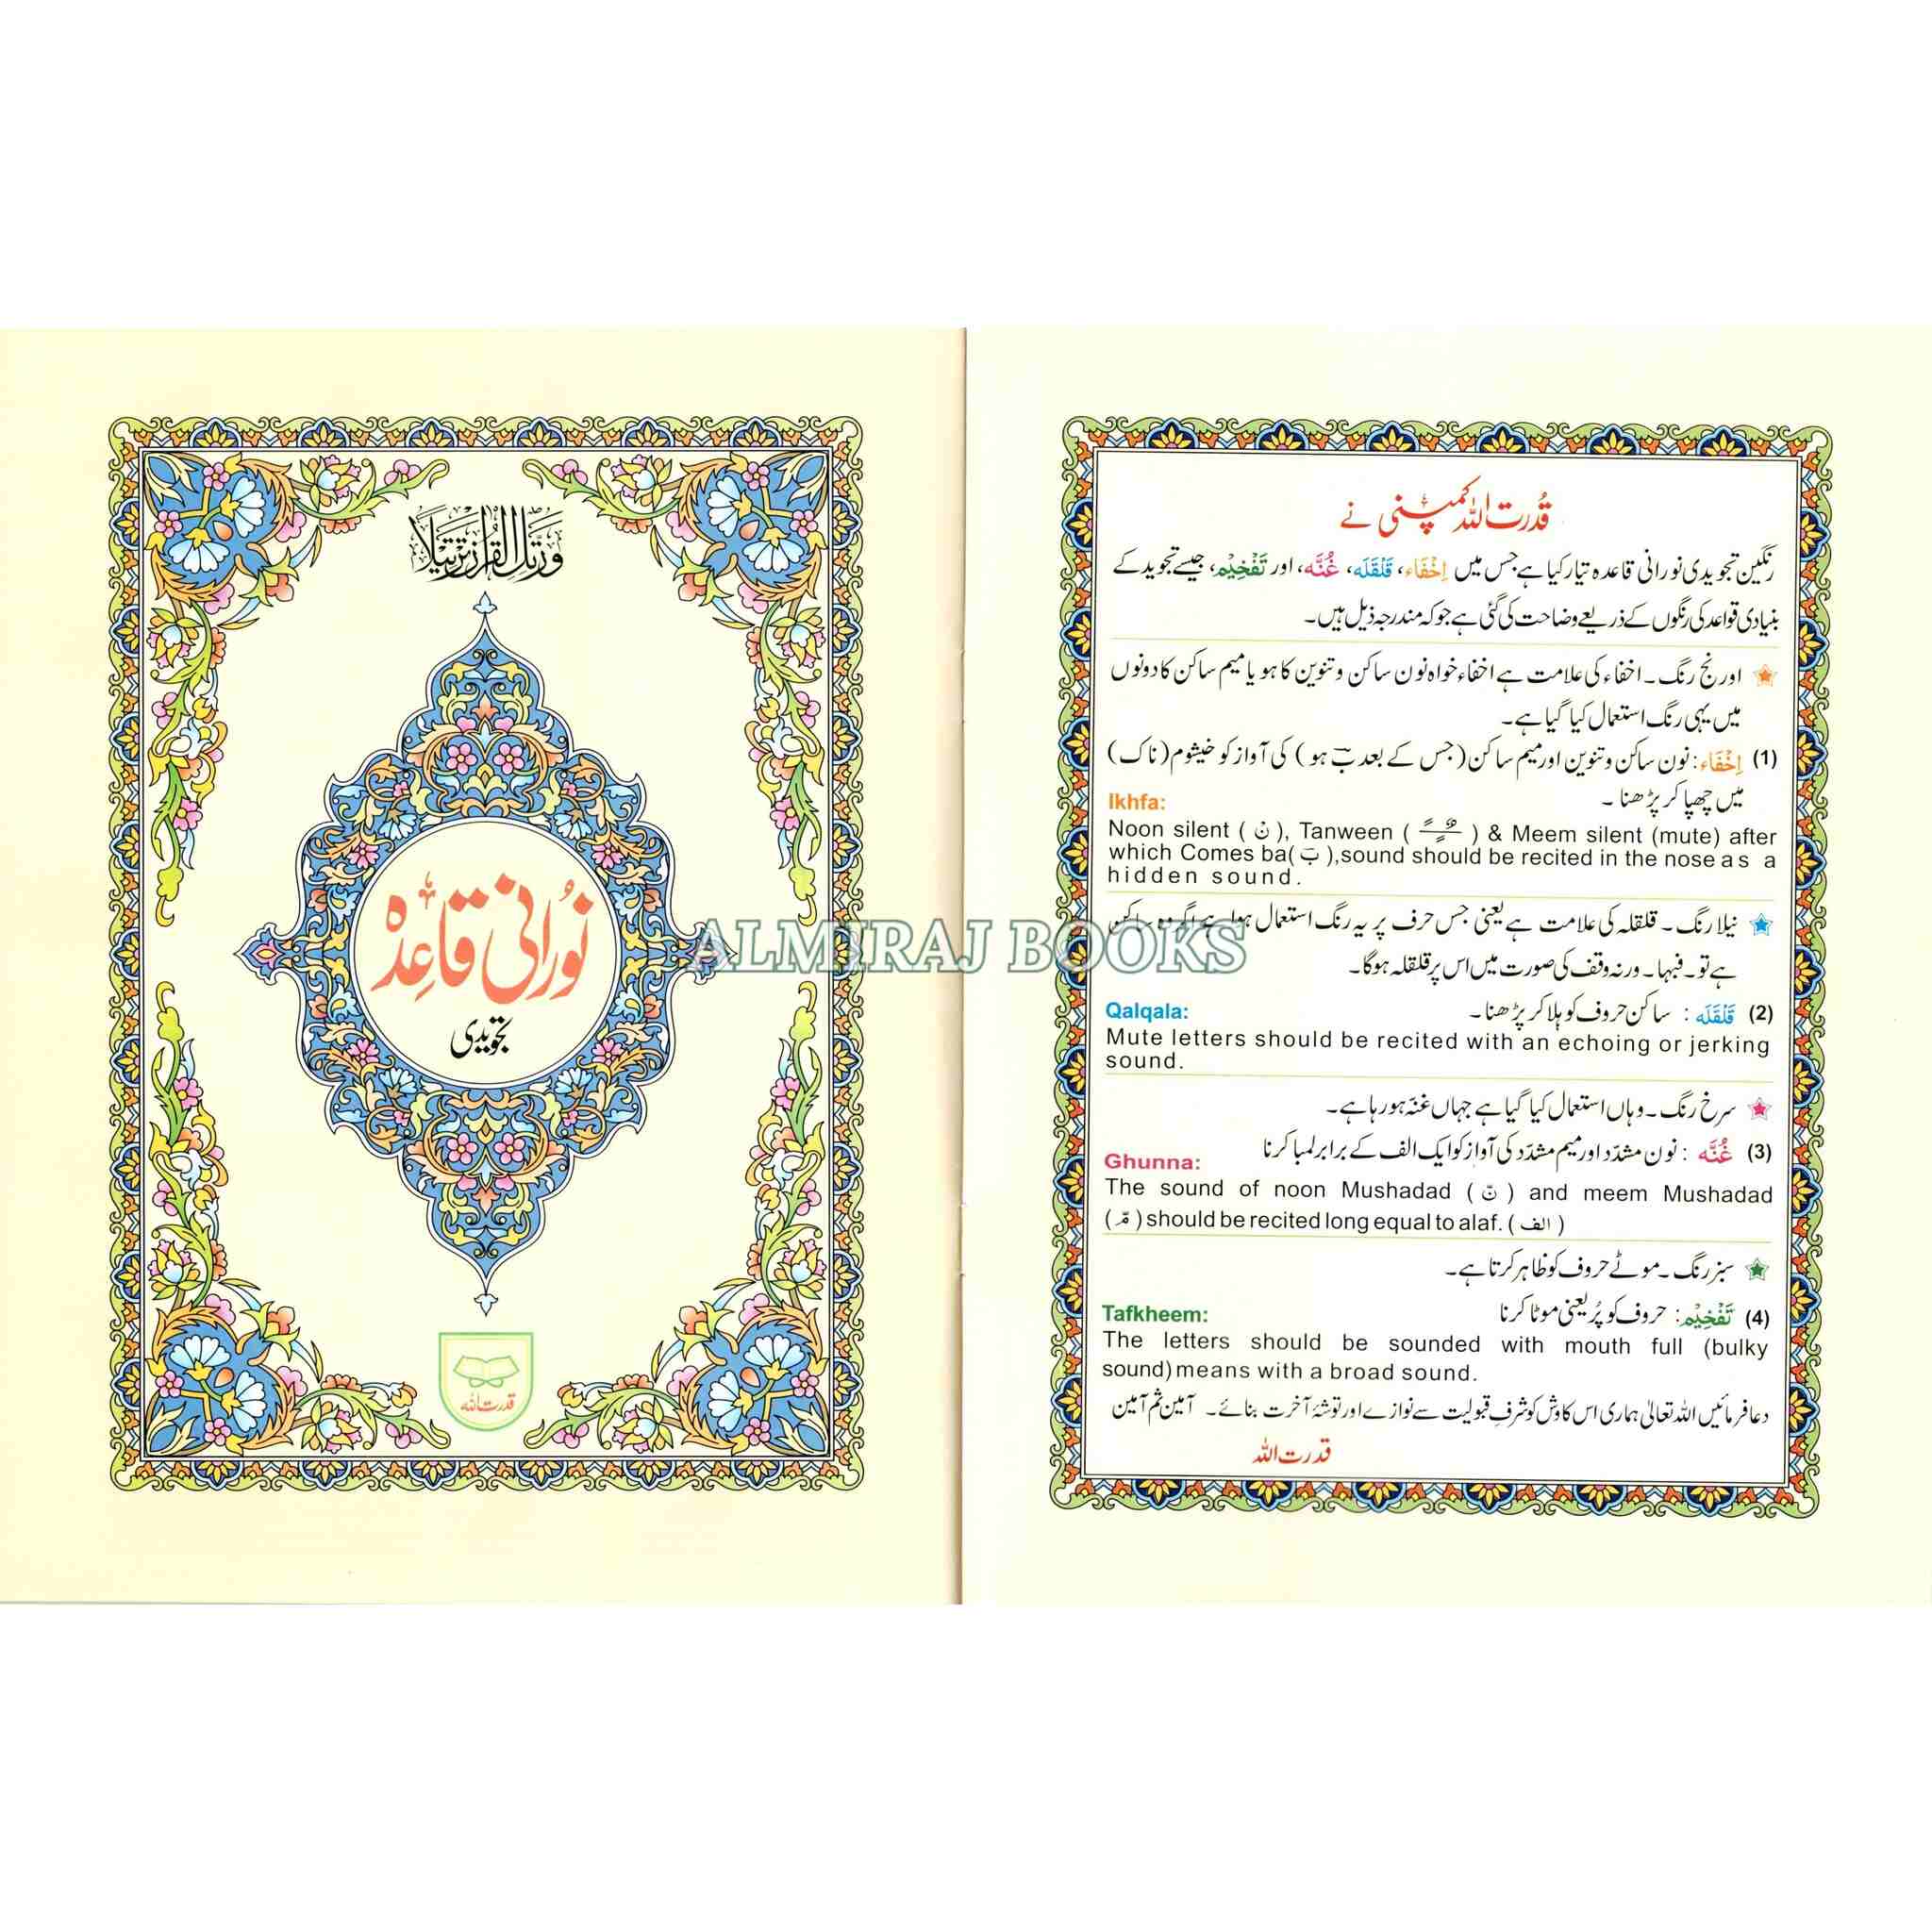 وَرَتِّلِ الْقُرْاٰنَ تَرْتِيْلًا
نُورانی قاعِدہ
تجویدی
قدرت اللہ
ALMIRAJ BOOKS
قُدرت اللہ کمپنی نے
رنگین تجویدی نورانی قاعدہ تیار کیا ہے جس میں اِخْفَاء، قَلْقَلَه، غُنَّه، اور تَفْخِيْم، جیسے تجوید کے
بنیادی قواعد کی رنگوں کے ذریعے وضاحت کی گئی ہے جو کہ مندرجہ ذیل ہیں۔
اورنج رنگ۔ اخفاء کی علامت ہے اخفاء خواہ نون ساکن و تنوین کا ہو یا میم ساکن کا دونوں
میں یہی رنگ استعمال کیا گیا ہے۔
(1) اِخْفَاء: نون ساکن و تنوین اور میم ساکن (جس کے بعد ب ہو) کی آواز کو خیشوم (ناک)
میں چھپا کر پڑھنا ۔
Ikhfa:
Noon silent ( نْ ), Tanween ( ـًـٍـٌ ) & Meem silent (mute) after
which Comes ba( بَ ),sound should be recited in the nose a s a
hidden sound.
نیلا رنگ۔ قلقلہ کی علامت ہے یعنی جس حرف پر یہ رنگ استعمال ہوا ہے اگر وہ ساکن
ہے تو۔ فبہا۔ ورنہ وقف کی صورت میں اس پر قلقلہ ہوگا۔
(2) قَلْقَلَه : ساکن حروف کو ہلا کر پڑھنا۔
Qalqala:
Mute letters should be recited with an echoing or jerking
sound.
سرخ رنگ۔ وہاں استعمال کیا گیا ہے جہاں غنّہ ہو رہا ہے۔
(3) غُنَّه : نون مشدّد اور میم مشدّد کی آواز کو ایک الف کے برابر لمبا کرنا
Ghunna:
The sound of noon Mushadad ( نّ ) and meem Mushadad
( مّ ) should be recited long equal to alaf. ( الف )
سبز رنگ۔ موٹے حروف کو ظاہر کرتا ہے۔
(4) تَفْخِيْم: حروف کو پُر یعنی موٹا کرنا
Tafkheem:
The letters should be sounded with mouth full (bulky
sound) means with a broad sound.
دعا فرمائیں اللہ تعالیٰ ہماری اس کاوش کو شرفِ قبولیت سے نوازے اور توشۂ آخرت بنائے۔ آمین ثم آمین
قدرت اللہ